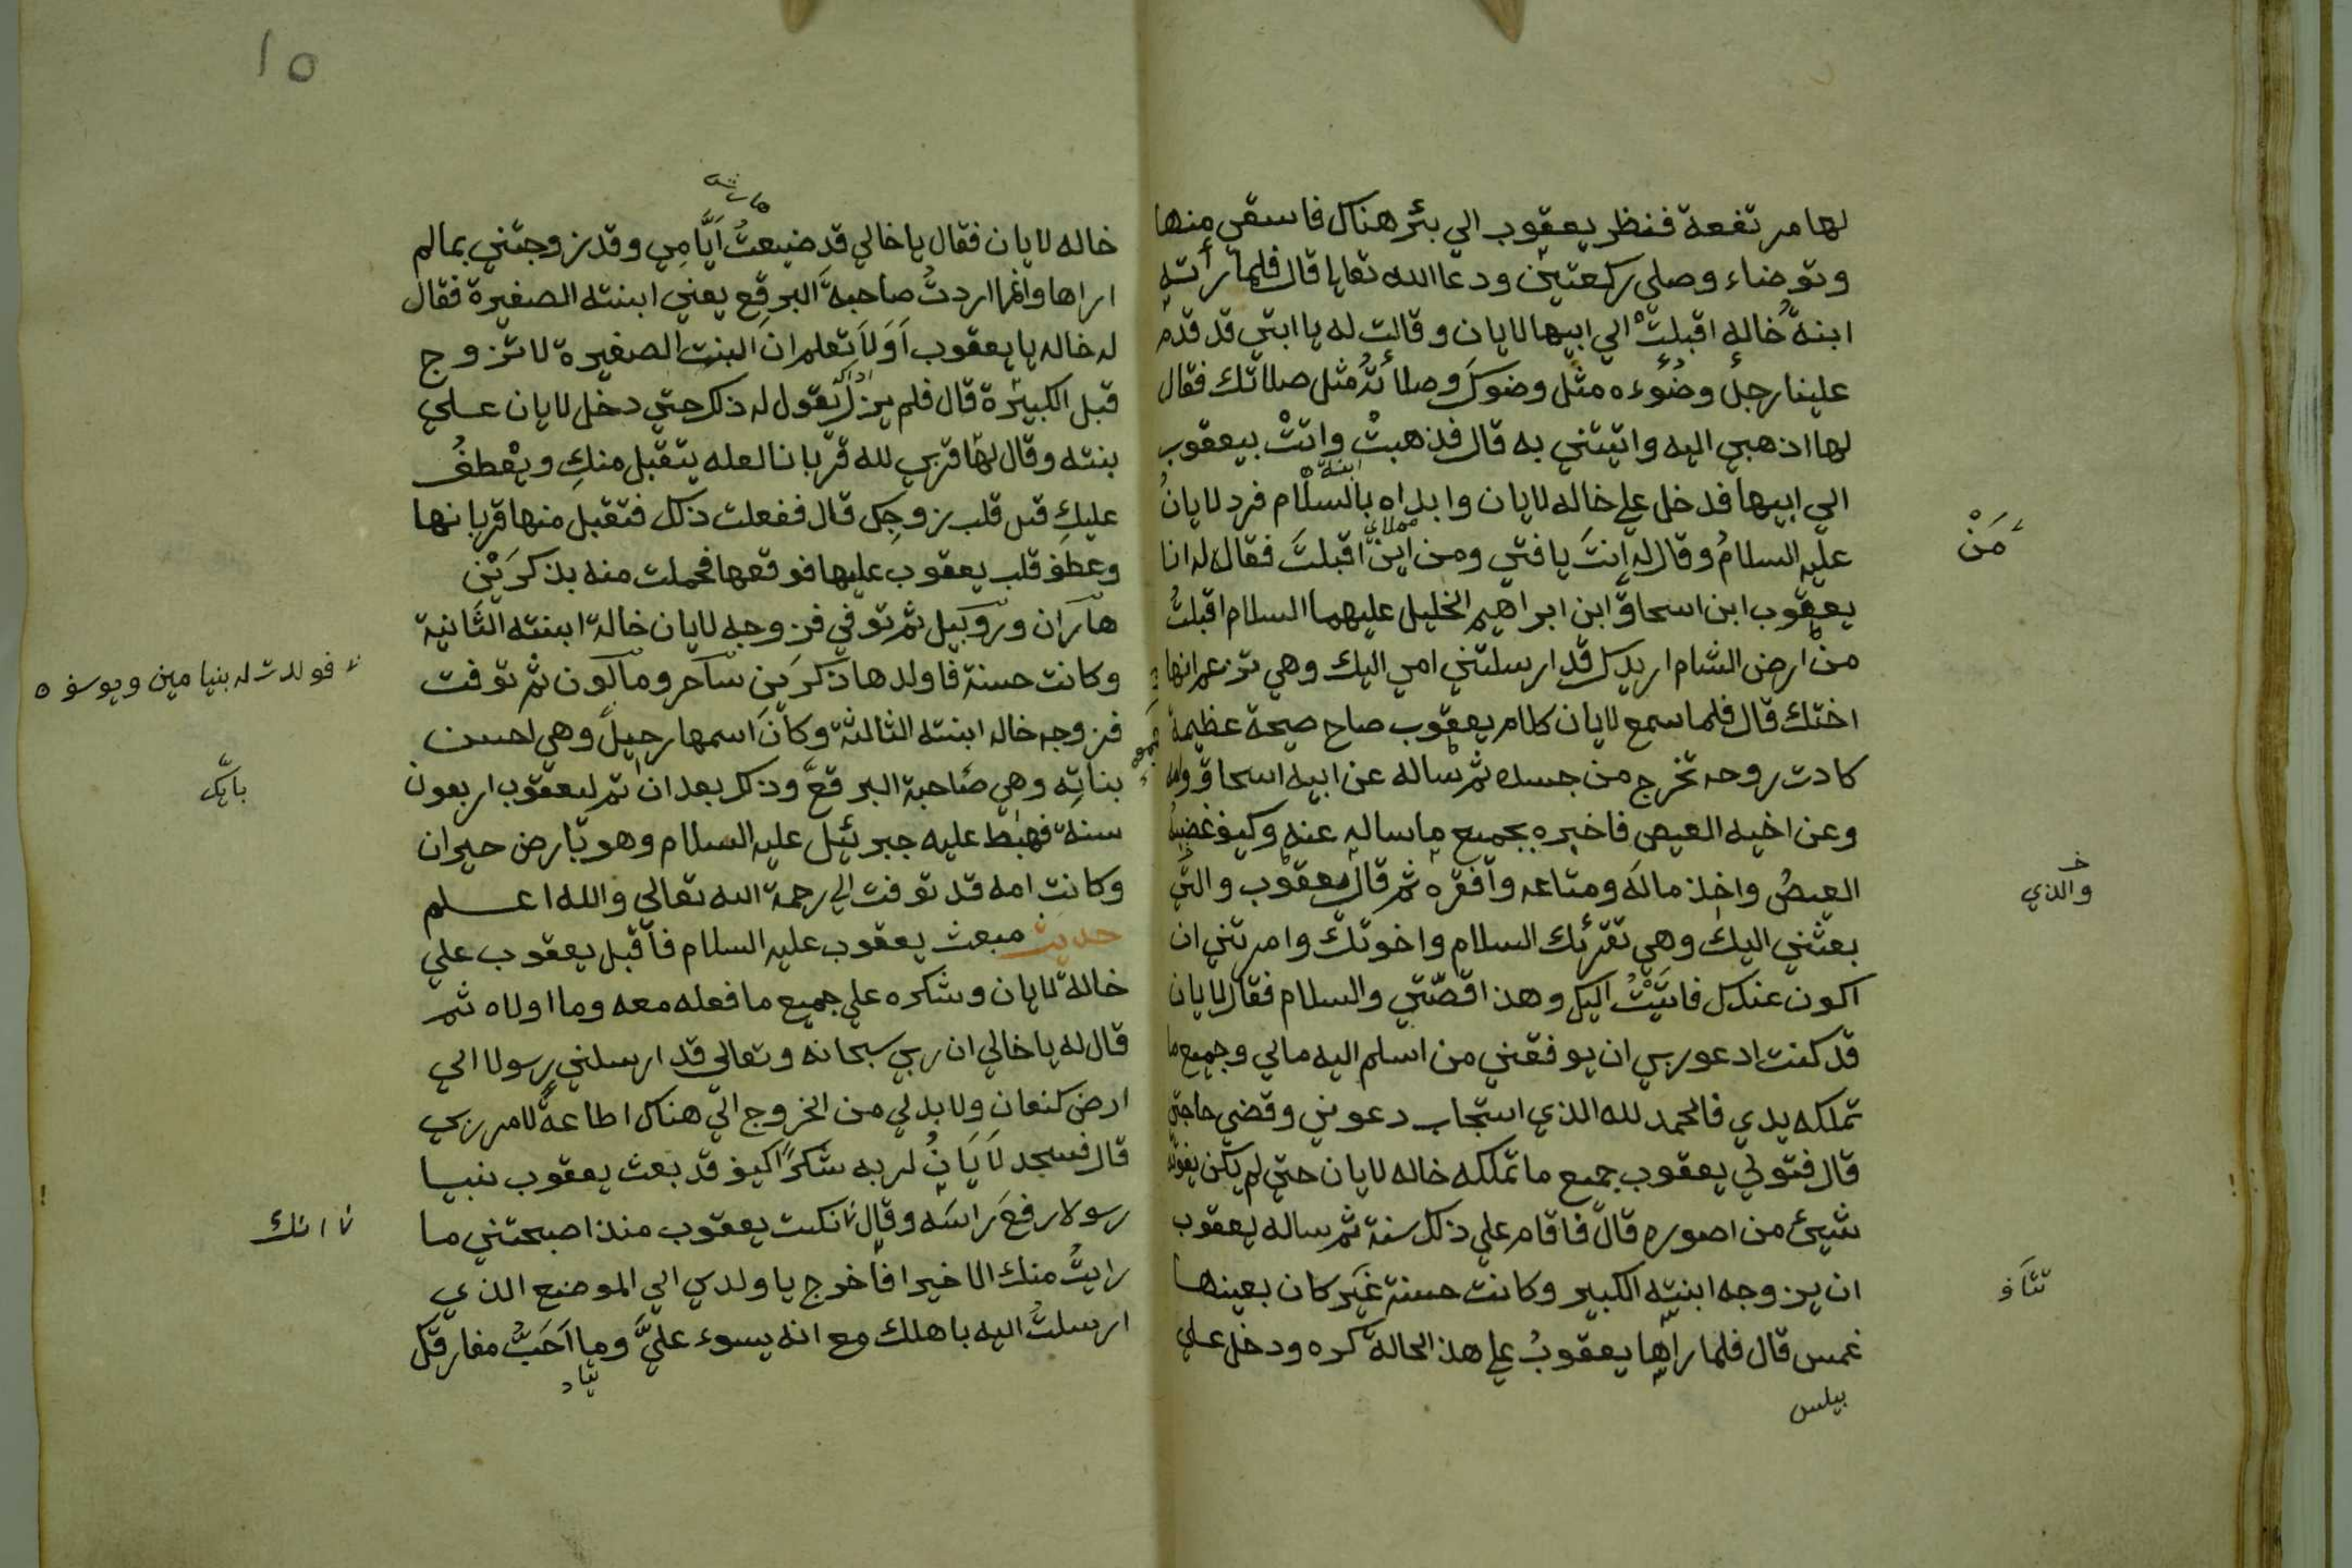 لها مرتفعة فنظر يعقوب الي بئر هناك فاسقي منها
وتوضاء وصلي ركعتين ودعا الله تعايا قال فلما رأته
ابنة خاله اقبلت الي ابيها لايان وقالت له يا ابتي قد قدم
علينا رجل وضوءه مثل وضوك وصلاته مثل صلاتك فقال
لها اذهبي اليه واتيتني به قال فذهبت واتت بيعقوب
ابنة
الي ابيها فدخل علي خاله لايان وابداه بالسلام فرد لايان
من
عليه السلام وقال له انت يا فتي ومن اين اقبلت فقال له انا
يعقوب ابن اسحاق ابن ابراهيم الخليل عليهما السلام اقبلت
من ارض الشام اريدك قد ارسلتني امي اليك وهي تزعم انها
اختك قال فلما سمع لايان كلام يعقوب صاح صيحة عظيمة
كادت روحه تخرج من جسده ثم ساله عن ابيه اسحاق وامه
وعن اخيه العيص فاخبره بجميع ما ساله عنه وكيف غضبه
العيص واخذ ماله ومتاعه وافقره ثم قال يعقوب والتي
والذي
بعثني اليك وهي تقرئك السلام واخوتك وامرتني ان
اكون عندك فاتيت اليك وهذا قصتي والسلام فقال لايان
قد كنت ادعو ربي ان يوفقني من اسلم اليه مالي وجميع ما
تملكه يدي فالحمد لله الذي استجاب دعوتي وقضي حاجتي
قال فتولي يعقوب جميع ما تملكه خاله لايان حتي لم يكن يفوته
شيئ من اصوره قال فاقام علي ذلك سنة ثم ساله يعقوب
ان يزوجه ابنته الكبير وكانت حسنة غير كان بعينها
غمس قال فلما راها يعقوب علي هذ الحالة كره ودخل علي
بيلس
١٥
خاله لايان فقال يا خالي قد ضيعت ايامي وقد زوجتني بمالم
اراها وانما اردت صاحبة البرقع يعني ابنته الصغيرة فقال
له خاله يا يعقوب اولا تعلم ان البنت الصغيرة لا تزوج
قبل الكبيرة قال فلم يزل تقول له ذلك حتي دخل لايان علي
بنته وقال لها قربي لله قربانا لعله يتقبل منك ويعطف
عليك قبل قلب زوجك قال ففعلت ذلك فتقبل منها قربانها
وعطف قلب يعقوب عليها فوقعها فحملت منه بذكرين
هاران وروبيل ثم توفي فزوجه لايان خالة ابنته الثانية
وكانت حسنة فاولدها ذكرين ساحر ومالكون ثم توفت
فزوجه خاله ابنته الثالثة وكان اسمها رحيل وهي احسن
فولدت له بنيامين ويوسف
بناته وهي صاحبة البرقع وذلك بعد ان تم ليعقوب اربعون
سنة فهبط عليه جبرئيل عليه السلام وهو بارض حيران
وكانت امه قد توفت الي رحمة الله تعالي والله اعلم
حديث مبعث يعقوب عليه السلام فاقبل يعقوب علي
خالة لايان وشكره علي جميع ما فعله معه وما اولاه ثم
قال له يا خالي ان ربي سبحانه وتعالي قد ارسلني رسولا الي
ارض كنعان ولا بد لي من الخروج الي هناك اطاعة لامر ربي
قال فسجد لايان لربه شكرا كيف قد بعث يعقوب نبيا
رسولا رفع راسه وقال انكت يعقوب منذ اصبحتني ما
انك
رايت منك الا خيرا فاخرج يا ولدي الي الموضع الذي
ارسلت اليه باهلك مع انه يسوء علي وما احب مفارقتك